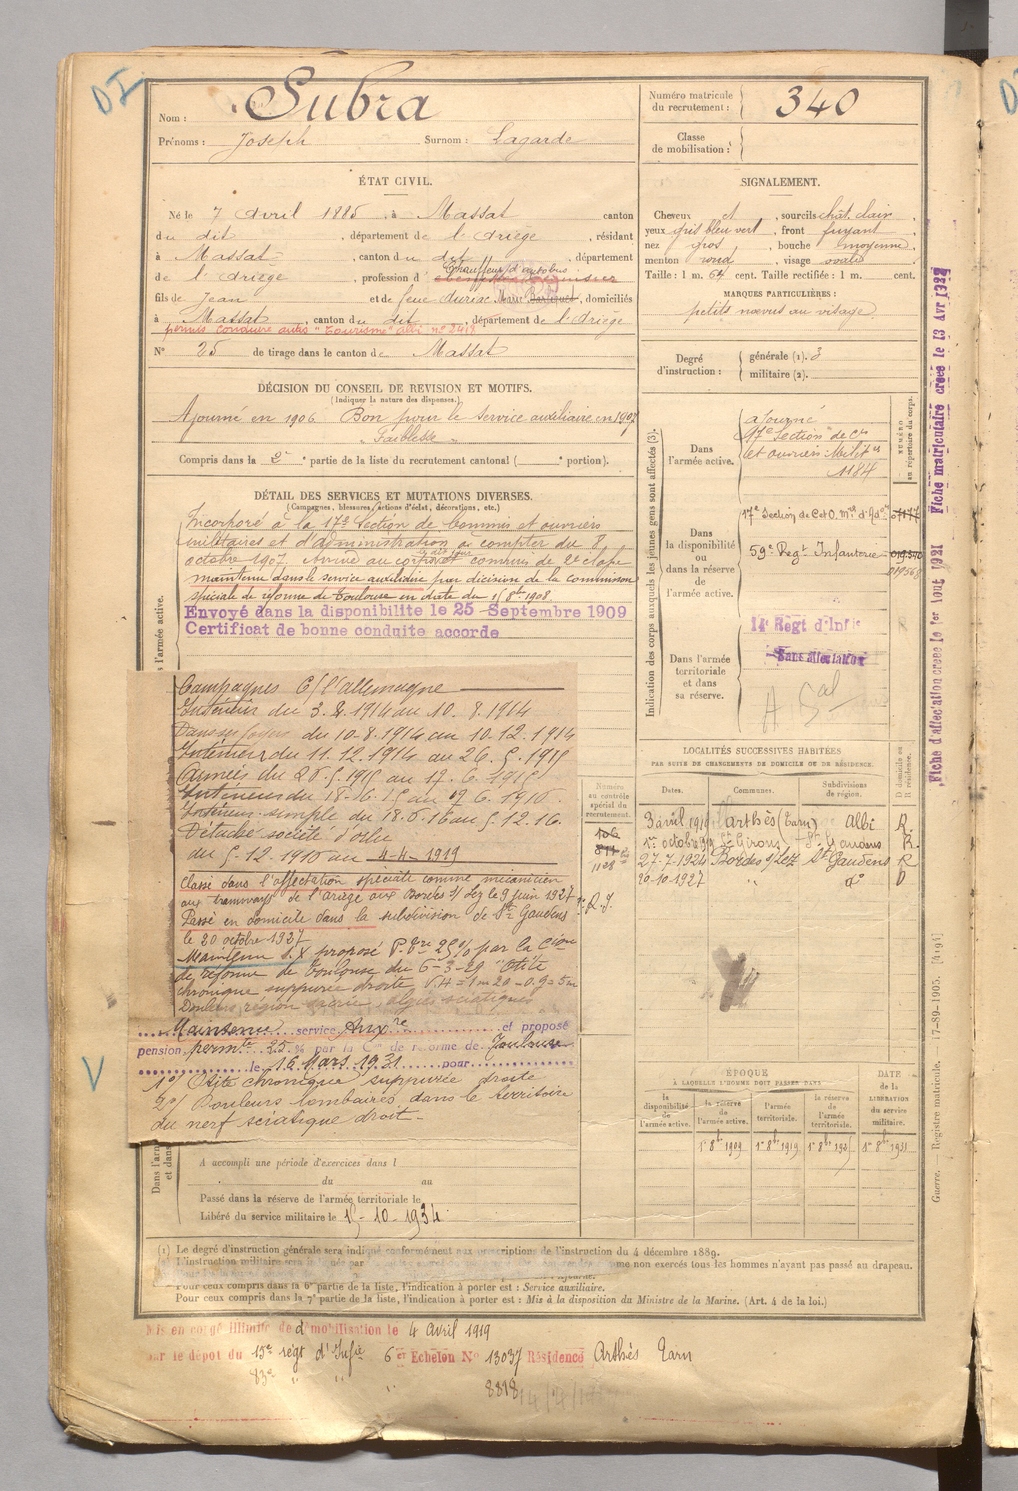 DI
Nom : Subra
Prénoms : Joseph Surnom : Lagarde
Numéro matricule du recrutement : 340
Classe de mobilisation :
ÉTAT CIVIL.
Né le 7 Avril 1885, à Massat canton
du dit, département de l'Ariège, résidant
à Massat, canton du dit, département
Chauffeur d'autobus
de l'Ariège, profession d'
fils de Jean et de feue domiciliés
à Massat, canton du dit, département de l'Ariège
permis conduire autos "Tourisme"
N° 25 de tirage dans le canton de Massat
SIGNALEMENT.
Cheveux ct, sourcils chat. clair,
yeux gris bleu vert, front fuyant,
nez gros, bouche moyenne,
menton rond, visage ovale
Taille : 1 m. 64 cent. Taille rectifiée : 1 m. cent.
MARQUES PARTICULIÈRES :
petits nœvus au visage
Degré d'instruction : générale (1). 3
militaire (2).
DÉCISION DU CONSEIL DE REVISION ET MOTIFS.
(Indiquer la nature des dispenses.)
Ajourné en 1906. Bon pour le service auxiliaire en 1907
"Faiblesse"
Compris dans la 2e partie de la liste du recrutement cantonal ( e portion).
DÉTAIL DES SERVICES ET MUTATIONS DIVERSES.
(Campagnes, blessures, actions d'éclat, décorations, etc.)
Incorporé à la 17e Section de Commis et ouvriers
militaires et d'administration à compter du 8
octobre 1907. Arrivé au corps et commis de 2e classe
maintenu dans le service auxiliaire par décision de la commission
spéciale de réforme de Toulouse en date du 1908
Envoyé dans la disponibilite le 25 Septembre 1909
Certificat de bonne conduite accorde
Campagnes C/ l'allemagne
Intérieur du 3.8.1914 au 10.8.1914
du 10-8-1914 au 10.12.1914
Intérieur du 11.12.1914 au 26.5.1915
Armées du
Intérieur du
Intérieur simple du 18.6.16 au 5.12.16.
Détaché société d'
du 5-12-1916 au 4-4-1919
Classé dans l'affectation spéciale comme mécanicien
aux tramways de l'ariège aux Bordes s/ Lez le 9 juin 1927
Passé en domicile dans la subdivision de St Gaudens
le 20 octobre 1927
Maintenu S.X proposé P. 25% par la Cion
de réforme de Toulouse du 6-3-29 "Otite
chronique suppurée droite
Douleurs région algies sciatiques
Maintenu service Auxre et proposé
pension permte 25 % par la Con de réforme de Toulouse
le 16 Mars 1931 pour
1°/ Otite chronique suppurée droite
2°/ Douleurs lombaires dans le territoire
du nerf sciatique droit -
V
A accompli une période d'exercices dans l
du au
Passé dans la réserve de l'armée territoriale le
Libéré du service militaire le 15-10-1934
Indication des corps auxquels les jeunes gens sont affectés (3).
NUMÉRO au répertoire du corps.
Dans l'armée active.
ajourné
17e Section de Cis
et ouvriers Milit es
1184
Dans la disponibilité ou dans la réserve de l'armée active.
17e Section de C et O. Mres d'Adon
59e Regt Infanterie
Dans l'armée territoriale et dans sa réserve.
14e Regt d'Infie
Sans affectation
LOCALITÉS SUCCESSIVES HABITÉES
PAR SUITE DE CHANGEMENTS DE DOMICILE OU DE RÉSIDENCE.
Dates. Communes. Subdivisions de région. D domicile ou R résidence.
3 avril 1919 Arthès (Tarn) Albi R.
1er octobre 1919 St Girons St Gaudens R.
27-7-1924 Bordes s/Lez St Gaudens R
20-10-1927 " do D
Numéro au contrôle spécial du recrutement.
106
ÉPOQUE
À LAQUELLE L'HOMME DOIT PASSER DANS
la disponibilité de l'armée active. la réserve de l'armée active. l'armée territoriale. la réserve de l'armée territoriale. DATE de la LIBÉRATION du service militaire.
1er 8bre 1909 1er 8bre 1919 1er 8bre 1931
(1) Le degré d'instruction générale sera indiqué conformément aux prescriptions de l'instruction du 4 décembre 1889.
L'instruction militaire sera me non exercés tous les hommes n'ayant pas passé au drapeau.
Pour ceux compris dans la 6e partie de la liste, l'indication à porter est : Service auxiliaire.
Pour ceux compris dans la 7e partie de la liste, l'indication à porter est : Mis à la disposition du Ministre de la Marine. (Art. 4 de la loi.)
Mis en congé illimité de démobilisation le 4 Avril 1919
par le dépot du 15e régt d'Infie 6e Echelon No 13037 Résidence Arthès Tarn
83e " " " 8818
Fiche d'affectation creee le 1er Aout 1921 Fiche matriculaire creee le 13 Avr
Guerre. — Registre matricule. — 17-89-1905. [4191]